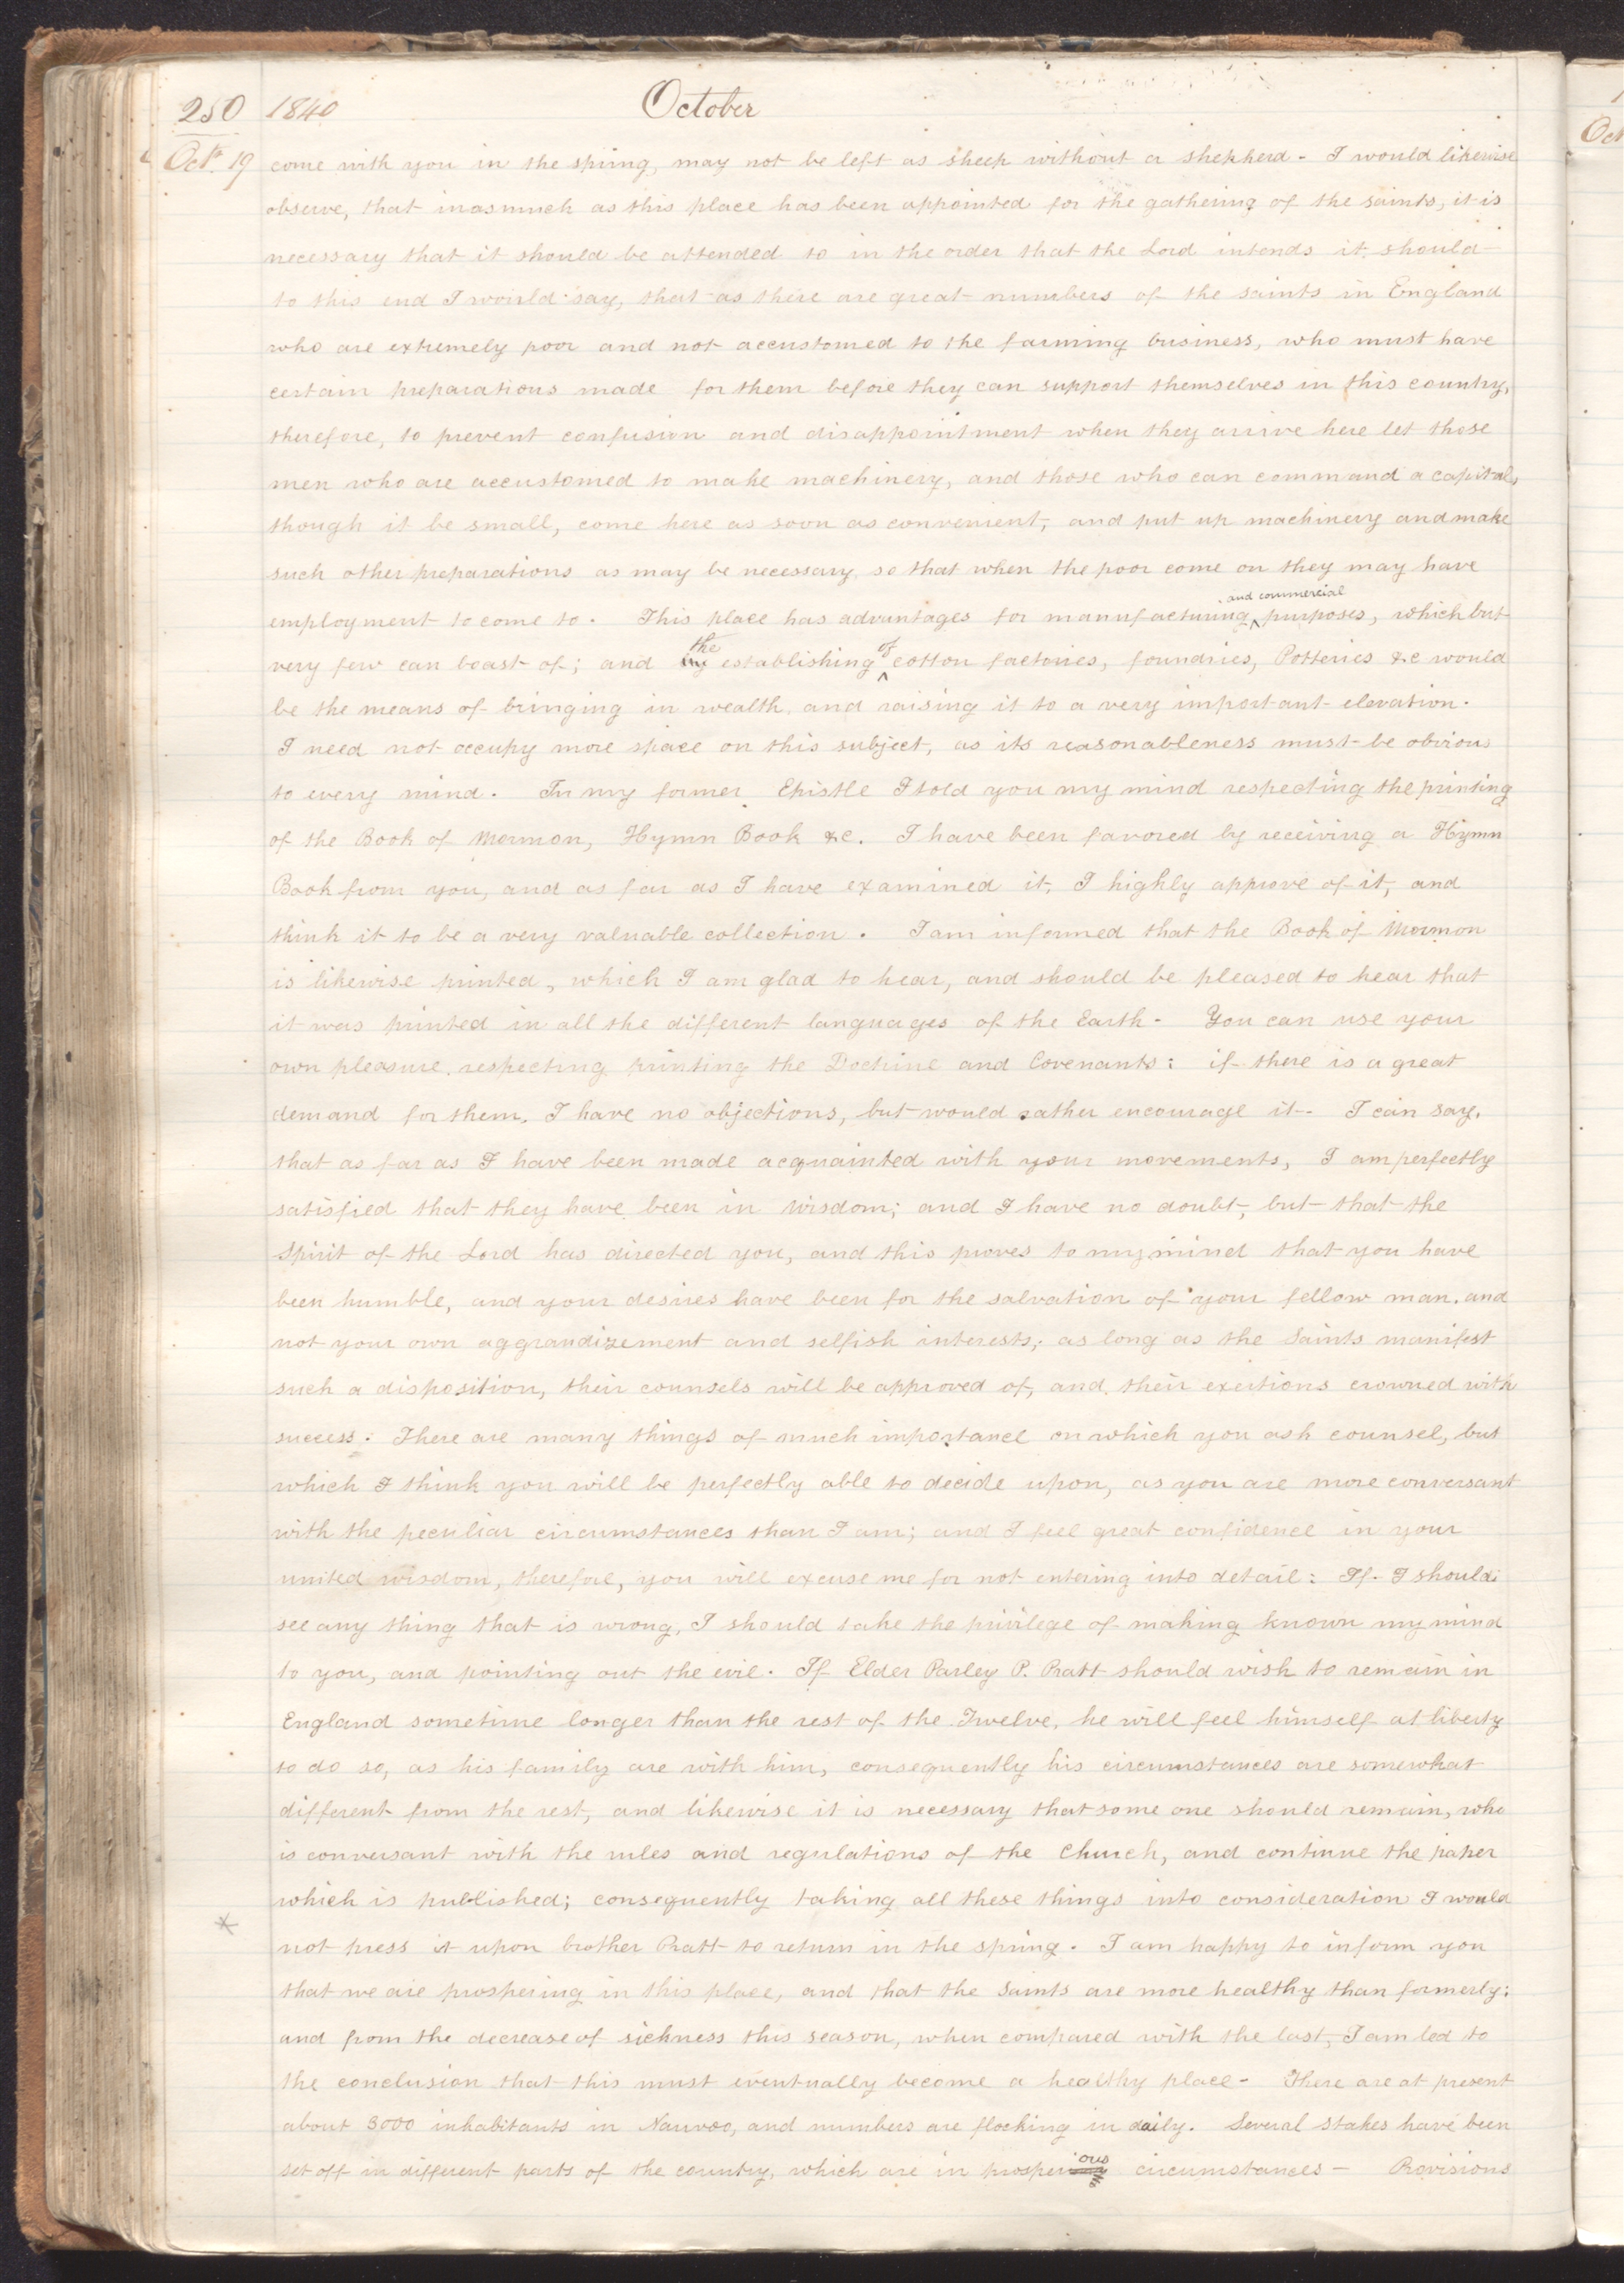 250 1840 October
Oct. 19 come with you in the spring, may not be left as sheep without a shepherd - I would likewise
observe, that inasmuch as this place has been appointed for the gathering of the saints, it is
necessary that it should be attended to in the order that the Lord intends it should
to this end I would say, that as there are great numbers of the saints in England
who are extremely poor and not accustomed to the farming business, who must have
certain preparations made for them before they can support themselves in this country,
therefore, to prevent confusion and disappointment when they arrive here let those
men who are accustomed to make machinery, and those who can command a capital,
though it be small, come here as soon as convenient, and put up machinery and make
such other preparations as may be necessary, so that when the poor come on they may have
employment to come to. This place has advantages for manufacturing ^and commercial purposes, which but
very few can boast of; and by the establishing ^of cotton factories, foundries, Potteries &c would
be the means of bringing in wealth, and raising it to a very important elevation.
I need not occupy more space on this subject, as its reasonableness must be obvious
to every mind. In my former Epistle I told you my mind respecting the printing
of the Book of Mormon, Hymn Book &c. I have been favored by receiving a Hymn
Book from you, and as far as I have examined it, I highly approve of it, and
think it to be a very valuable collection. I am informed that the Book of Mormon
is likewise printed, which I am glad to hear, and should be pleased to hear that
it was printed in all the different languages of the Earth. You can use your
own pleasure respecting printing the Doctrine and Covenants: if there is a great
demand for them, I have no objections, but would rather encourage it - I can say,
that as far as I have been made acquainted with your movements, I am perfectly
satisfied that they have been in wisdom; and I have no doubt, but that the
Spirit of the Lord has directed you, and this proves to my mind that you have
been humble, and your desires have been for the salvation of your fellow man, and
not your own aggrandizement and selfish interests; as long as the Saints manifest
such a disposition, their counsels will be approved of, and their exertions crowned with
success. There are many things of much importance on which you ask counsel, but
which I think you will be perfectly able to decide upon, as you are more conversant
with the peculiar circumstances than I am; and I feel great confidence in your
united wisdom, therefore, you will excuse me for not entering into detail: If I should
see any thing that is wrong, I should take the privilege of making known my mind
to you, and pointing out the evil. If Elder Parley P. Pratt should wish to remain in
England sometime longer than the rest of the Twelve, he will feel himself at liberty
to do so, as his family are with him, consequently his circumstances are somewhat
different from the rest, and likewise it is necessary that some one should remain, who
is conversant with the rules and regulations of the Church, and continue the paper
which is published; consequently taking all these things into consideration I would
* not press it upon brother Pratt to return in the spring. I am happy to inform you
that we are prospering in this place, and that the Saints are more healthy than formerly;
and from the decrease of sickness this season, when compared with the last, I am led to
the conclusion that this must eventually become a healthy place - There are at present
about 3000 inhabitants in Nauvoo, and numbers are flocking in daily. Several Stakes have been
set off in different parts of the country, which are in prosperous circumstances - Provisions
Oct